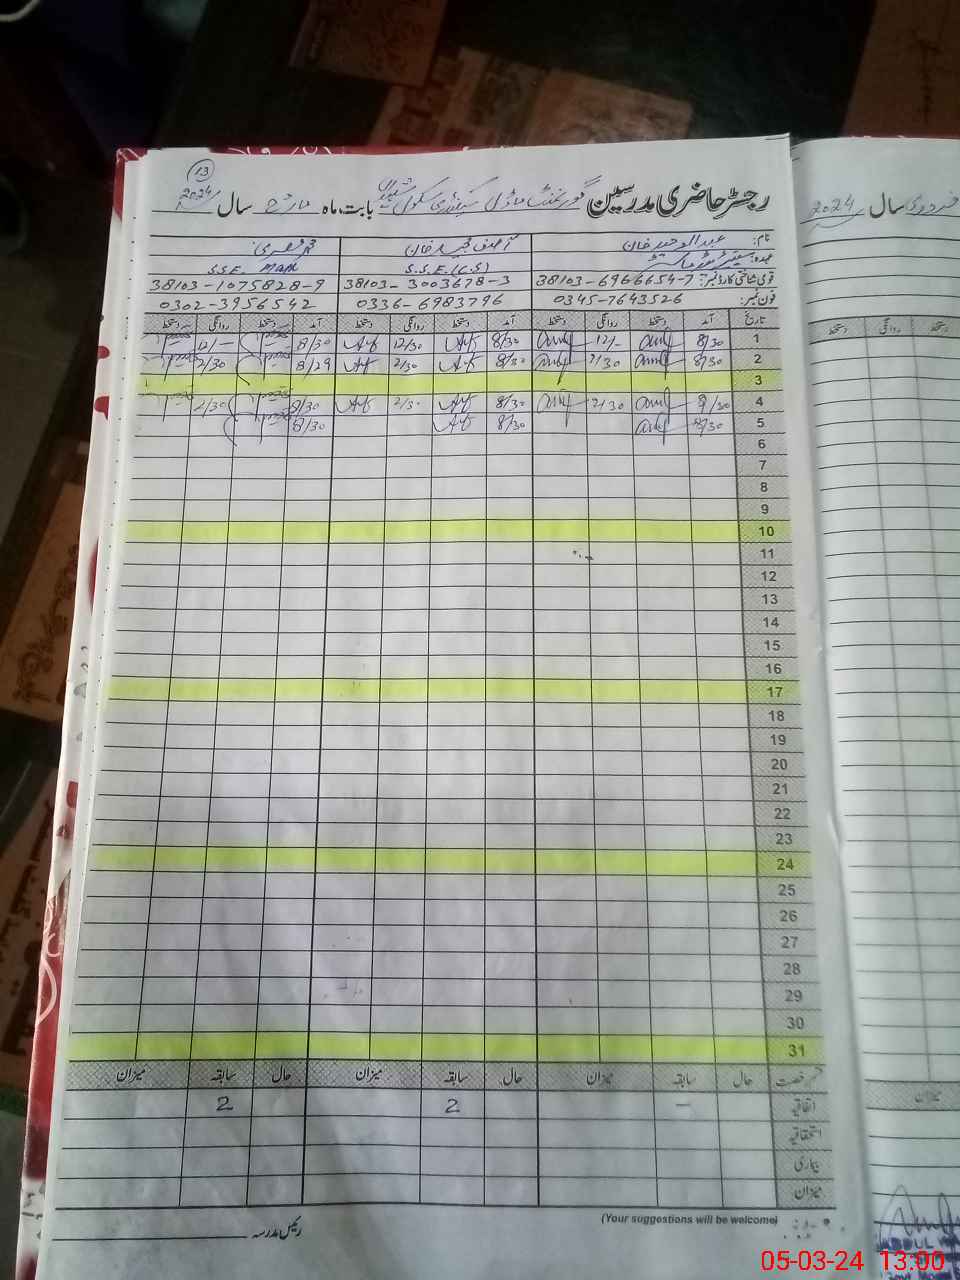 13
رجسٹر حاضری مدرسین گورنمنٹ ماڈل سیکنڈری سکول بابت ماہ مارچ سال 2024
نام: عبدالوحید خان آصف مجید خان
عہدہ: S.S.E.(C.S) S.S.E.
قومی شناختی کارڈ نمبر: 38103-6966654-7 38103-3003678-3 38103-1075828-9
فون نمبر: 0345-7643526 0336-6983796 0302-3956542
تاریخ آمد دستخط روانگی دستخط آمد دستخط روانگی دستخط آمد دستخط روانگی دستخط
1 8/30 12/- 8/30 12/30 8/30 12/-
2 8/30 2/30 8/30 2/30 8/29 2/30
3
4 8/30 2/30 8/30 2/30 8/30 2/30
5 8/30 8/30 8/30
6
7
8
9
10
11
12
13
14
15
16
17
18
19
20
21
22
23
24
25
26
27
28
29
30
31
رخصت حال سابقہ میزان حال سابقہ میزان حال سابقہ میزان
اتفاقیہ - 2 2
استحقاقیہ
بیماری
میزان
(Your suggestions will be welcome)
رئیس مدرسہ
فروری سال 2024
دستخط روانگی دستخط
میزان
ABDUL
05-03-24 13:00